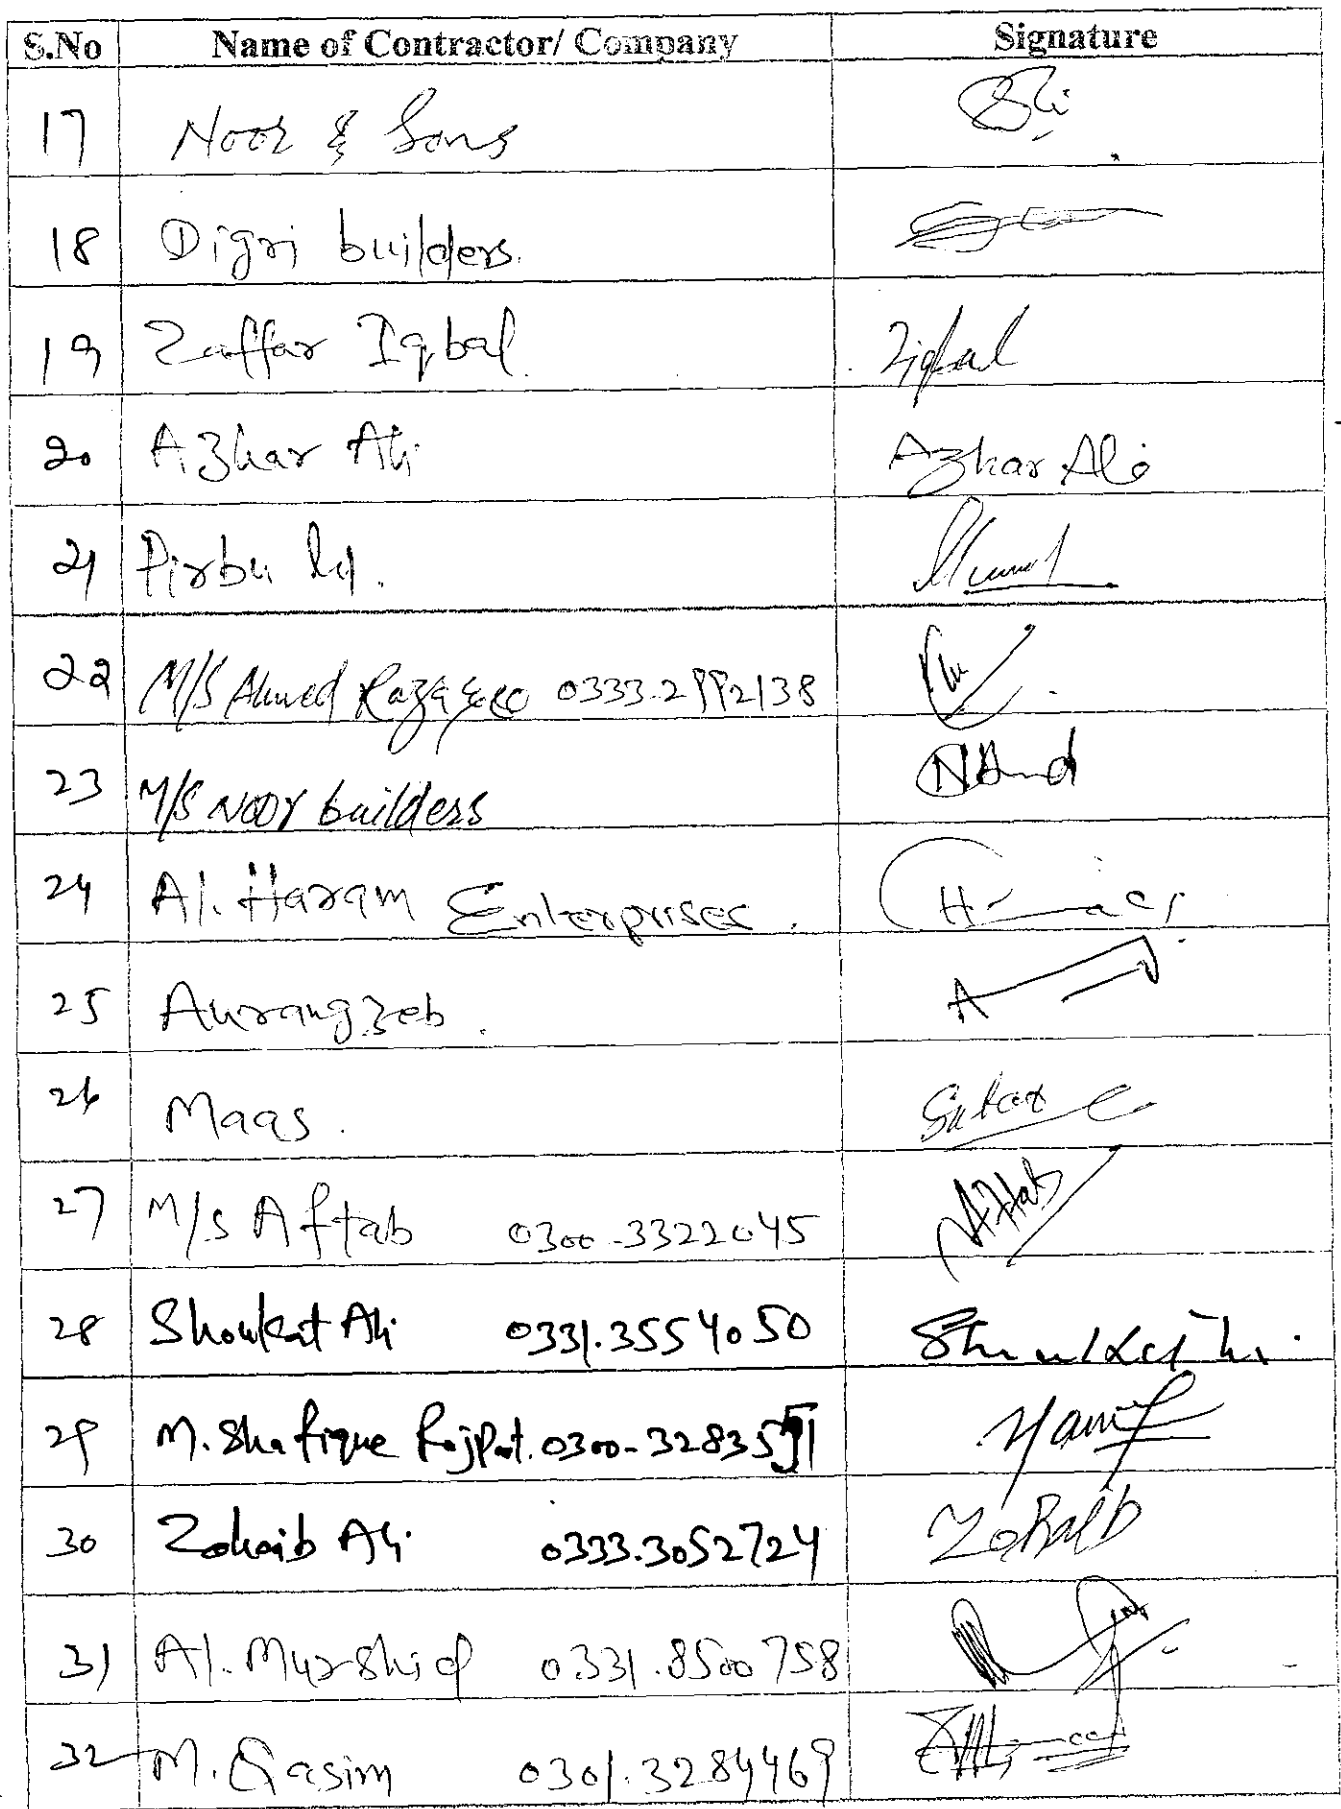 S.No Name of Contractor/ Company Signature
17 Noor & Sons
18 Digri builders.
19 Zaffar Iqbal. Ziqbal
20 Azhar Ali Azhar Ali
21 Pirbu
22 M/S Ahmed Raza & co 0333-2992138
23 M/S Noor builders
24 Al. Haram Enterprises.
25 Aurangzeb.
26 Maas.
27 M/s Aftab 0300-3322045 Aftab
28 Shoukat Ali 0331.3554050
29 M. Shafique Rajput. 0300-
30 Zohaib Ali 0333.3052724 Zohaib
31 Al. Murshid 0331.8500758
32 M. Qasim 0301.3284469